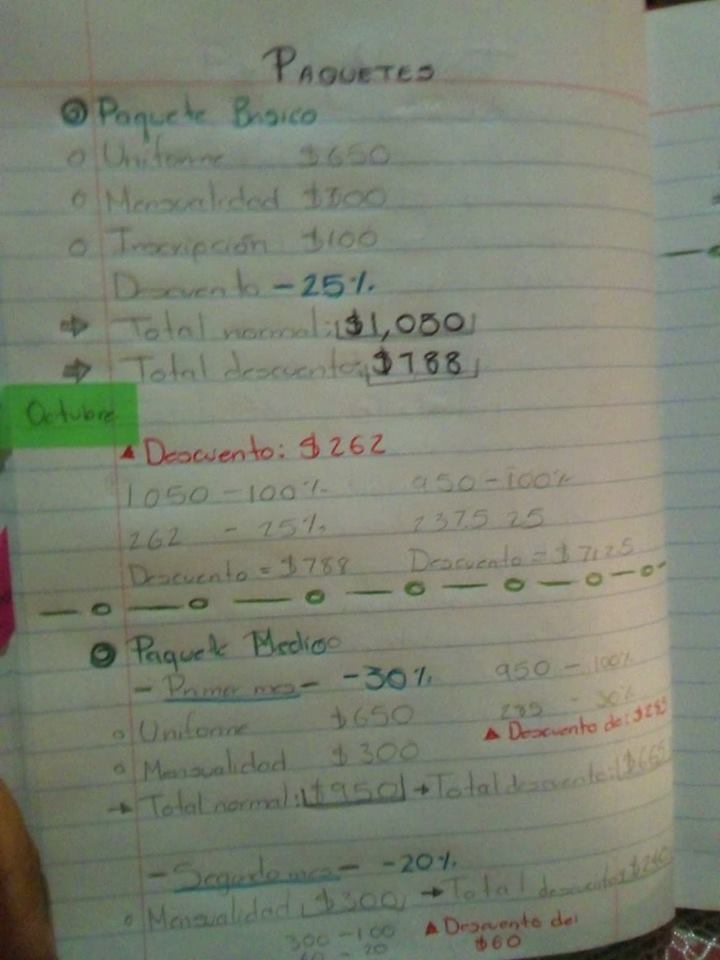 PAQUETES
Paquete Basico
Uniforme $650
Mensualidad $300
Inscripción $100
Descuento -25%
Total normal: $1,050
Total descuento: $788
Octubre
Descuento: $262
1050 - 100% 950 - 100%
262 - 25% 237.5 25
Descuento = $788 Descuento = $712.5
Paquete Medioo
- Primer mes - -30% 950 - 100%
285 - 30%
Uniforme $650
Descuento de: $285
Mensualidad $300
Total normal: $950 → Total descuento: $665
- Segundo mes - -20%
Mensualidad $300 → Total descuento $240
300 - 100 Descuento de:
60 - 20 $60